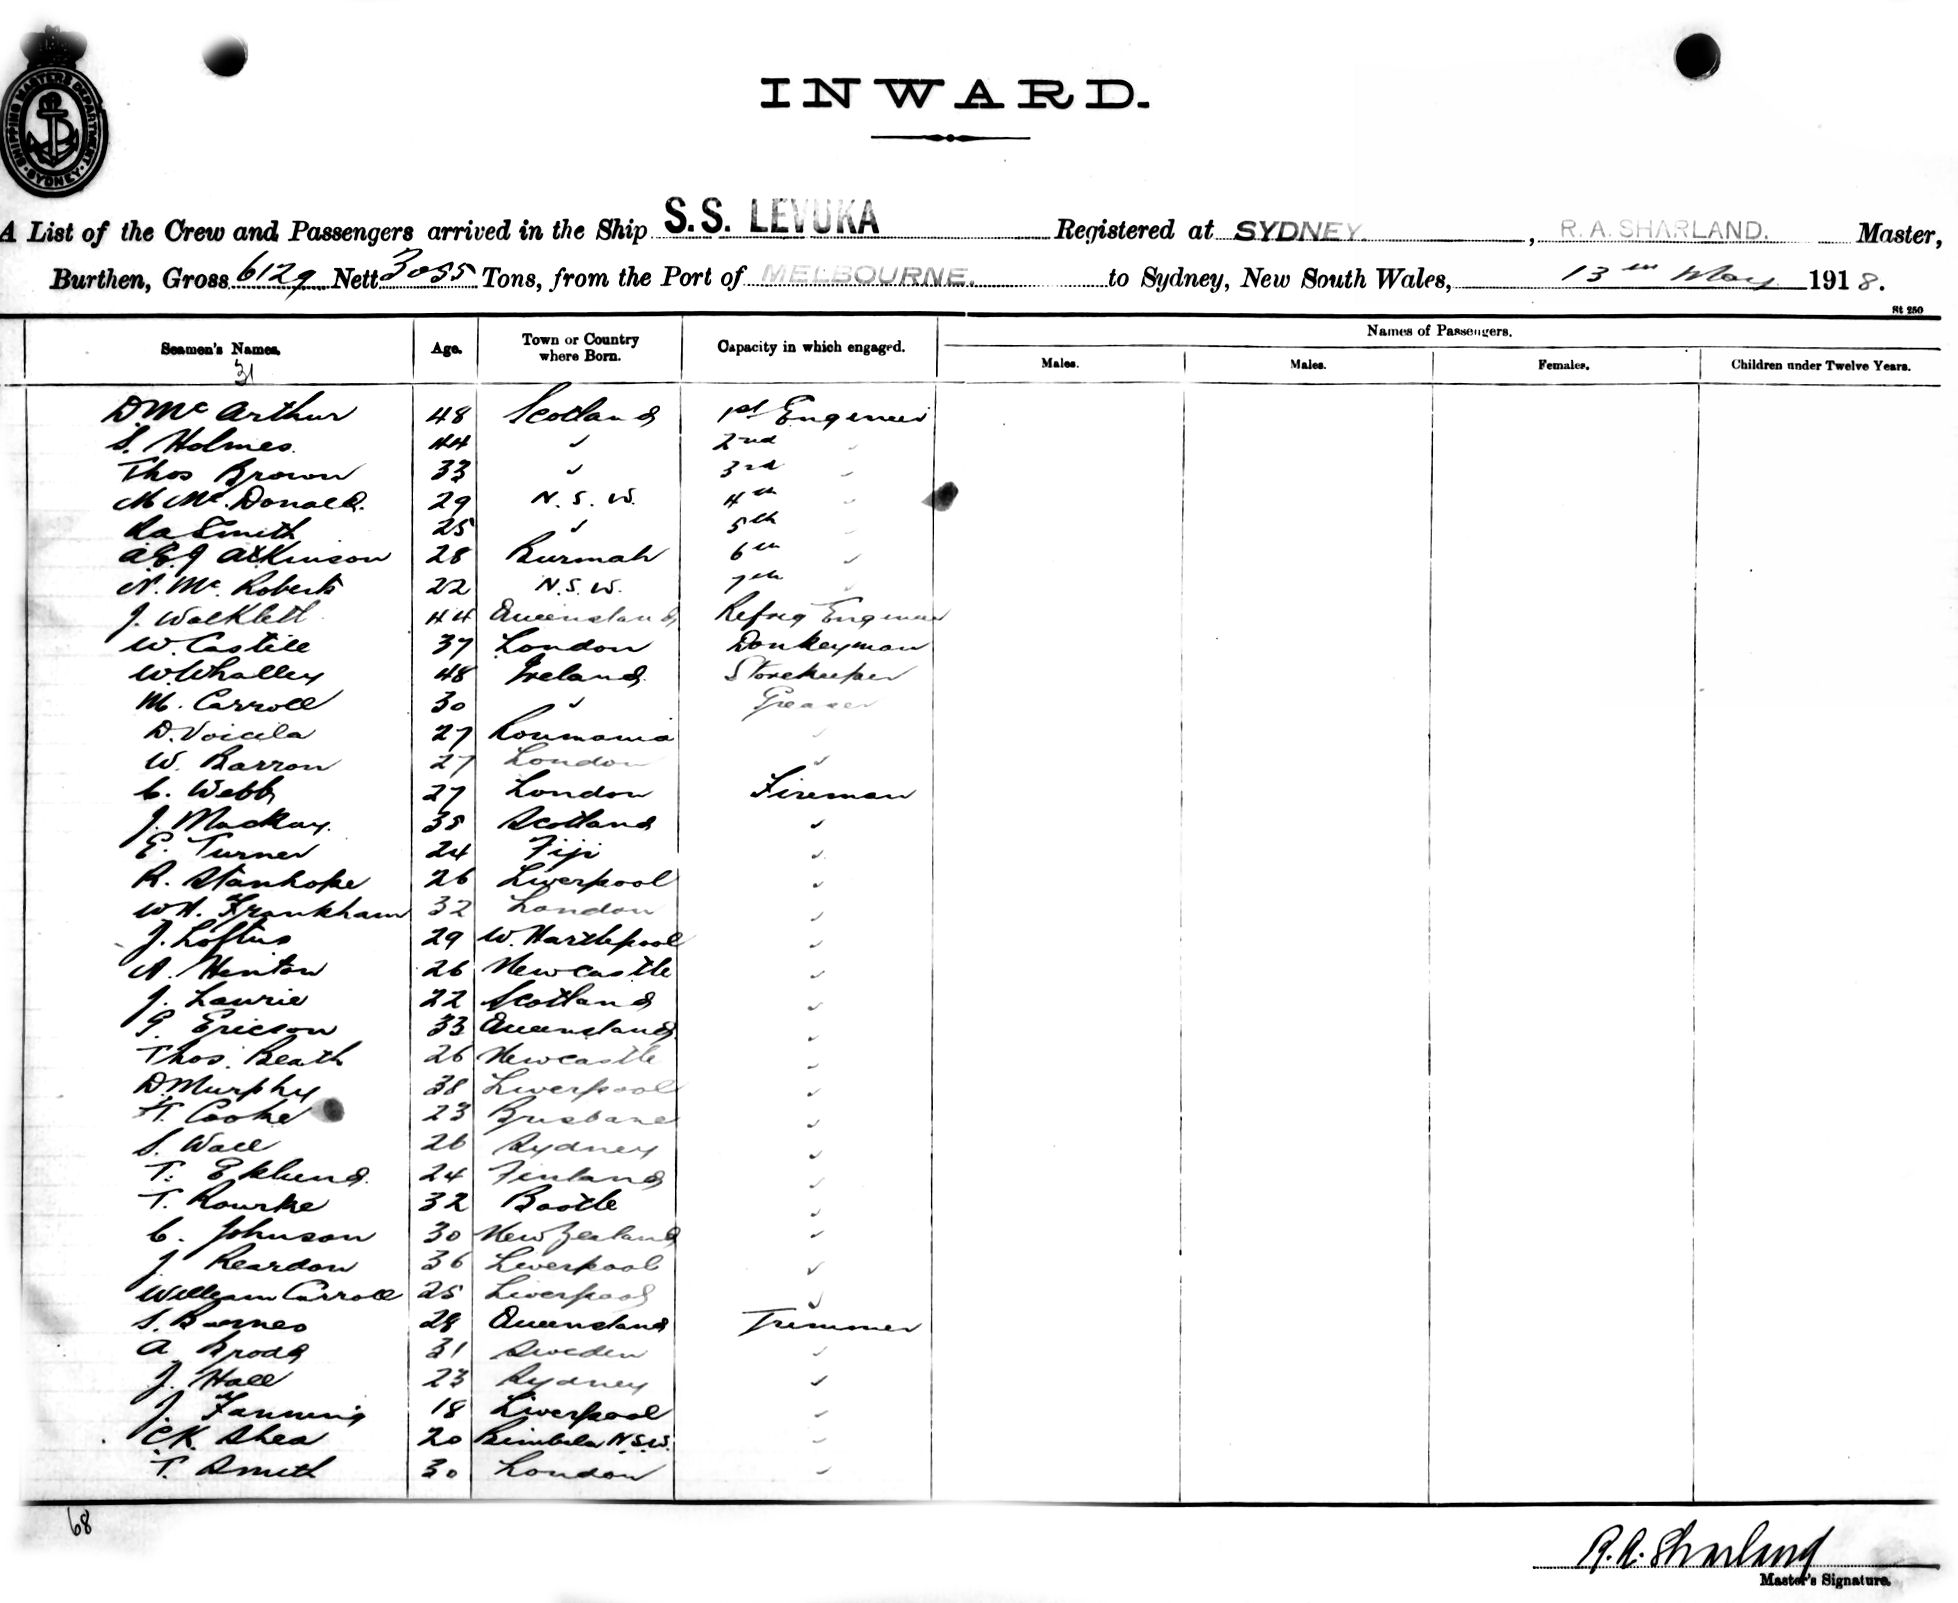 SHIPPING MASTERS DEPARTMENT SYDNEY
INWARD.
A List of the Crew and Passengers arrived in the Ship S.S. LEVUKA Registered at SYDNEY. , R. A. SHARLAND. Master,
Burthen, Gross 6129 Nett 3055 Tons, from the Port of MELBOURNE. to Sydney, New South Wales, 13th May 1918.
St 250
Seamen's Names. Age. Town or Country where Born. Capacity in which engaged. Names of Passengers.
Males. Males. Females. Children under Twelve Years.
31
D. Mc Arthur 48 Scotland 1st Engineer
S. Holmes. 44 " 2nd "
Thos Brown 33 " 3rd "
M Mc. Donald. 29 N.S.W. 4th "
Smith 25 " 5th "
A.E.J Atkinson 28 Burmah 6th "
N. Mc Roberts 22 N.S.W. 7th "
J. Walklett 44 Queensland Refrig Engineer
W. Castile 37 London Donkeyman
W. Whalley 48 Ireland. Storekeeper
M. Carroll 30 " Greaser
D. Voicila 27 Roumania "
W. Barron 27 London "
C. Webb 27 London Fireman
J. Mackay. 38 Scotland "
E. Turner 24 Fiji "
R. Stanhope 26 Liverpool "
W.H. Frankham 32 London "
J. Loftus 29 W. Hartlepool "
A. Hinton 26 Newcastle "
J. Laurie 22 Scotland "
G. Ericson 33 Queensland "
Thos. Beath 26 Newcastle "
D. Murphy 38 Liverpool "
H. Cooke 23 Brisbane "
S. Wall 26 Sydney "
T. Eklund. 24 Finland "
T. Rourke 32 Bootle "
C. Johnson 30 New Zealand "
J Reardon 36 Liverpool "
William Carroll 25 Liverpool "
S. Barnes 28 Queensland Trimmer
A Brodd 31 Sweden "
J. Hall 23 Sydney "
J. Fanning 18 Liverpool "
C.K. Shea 20 N.S.W. "
T. Smith 30 London "
68
R. A. Sharland
Master's Signature.